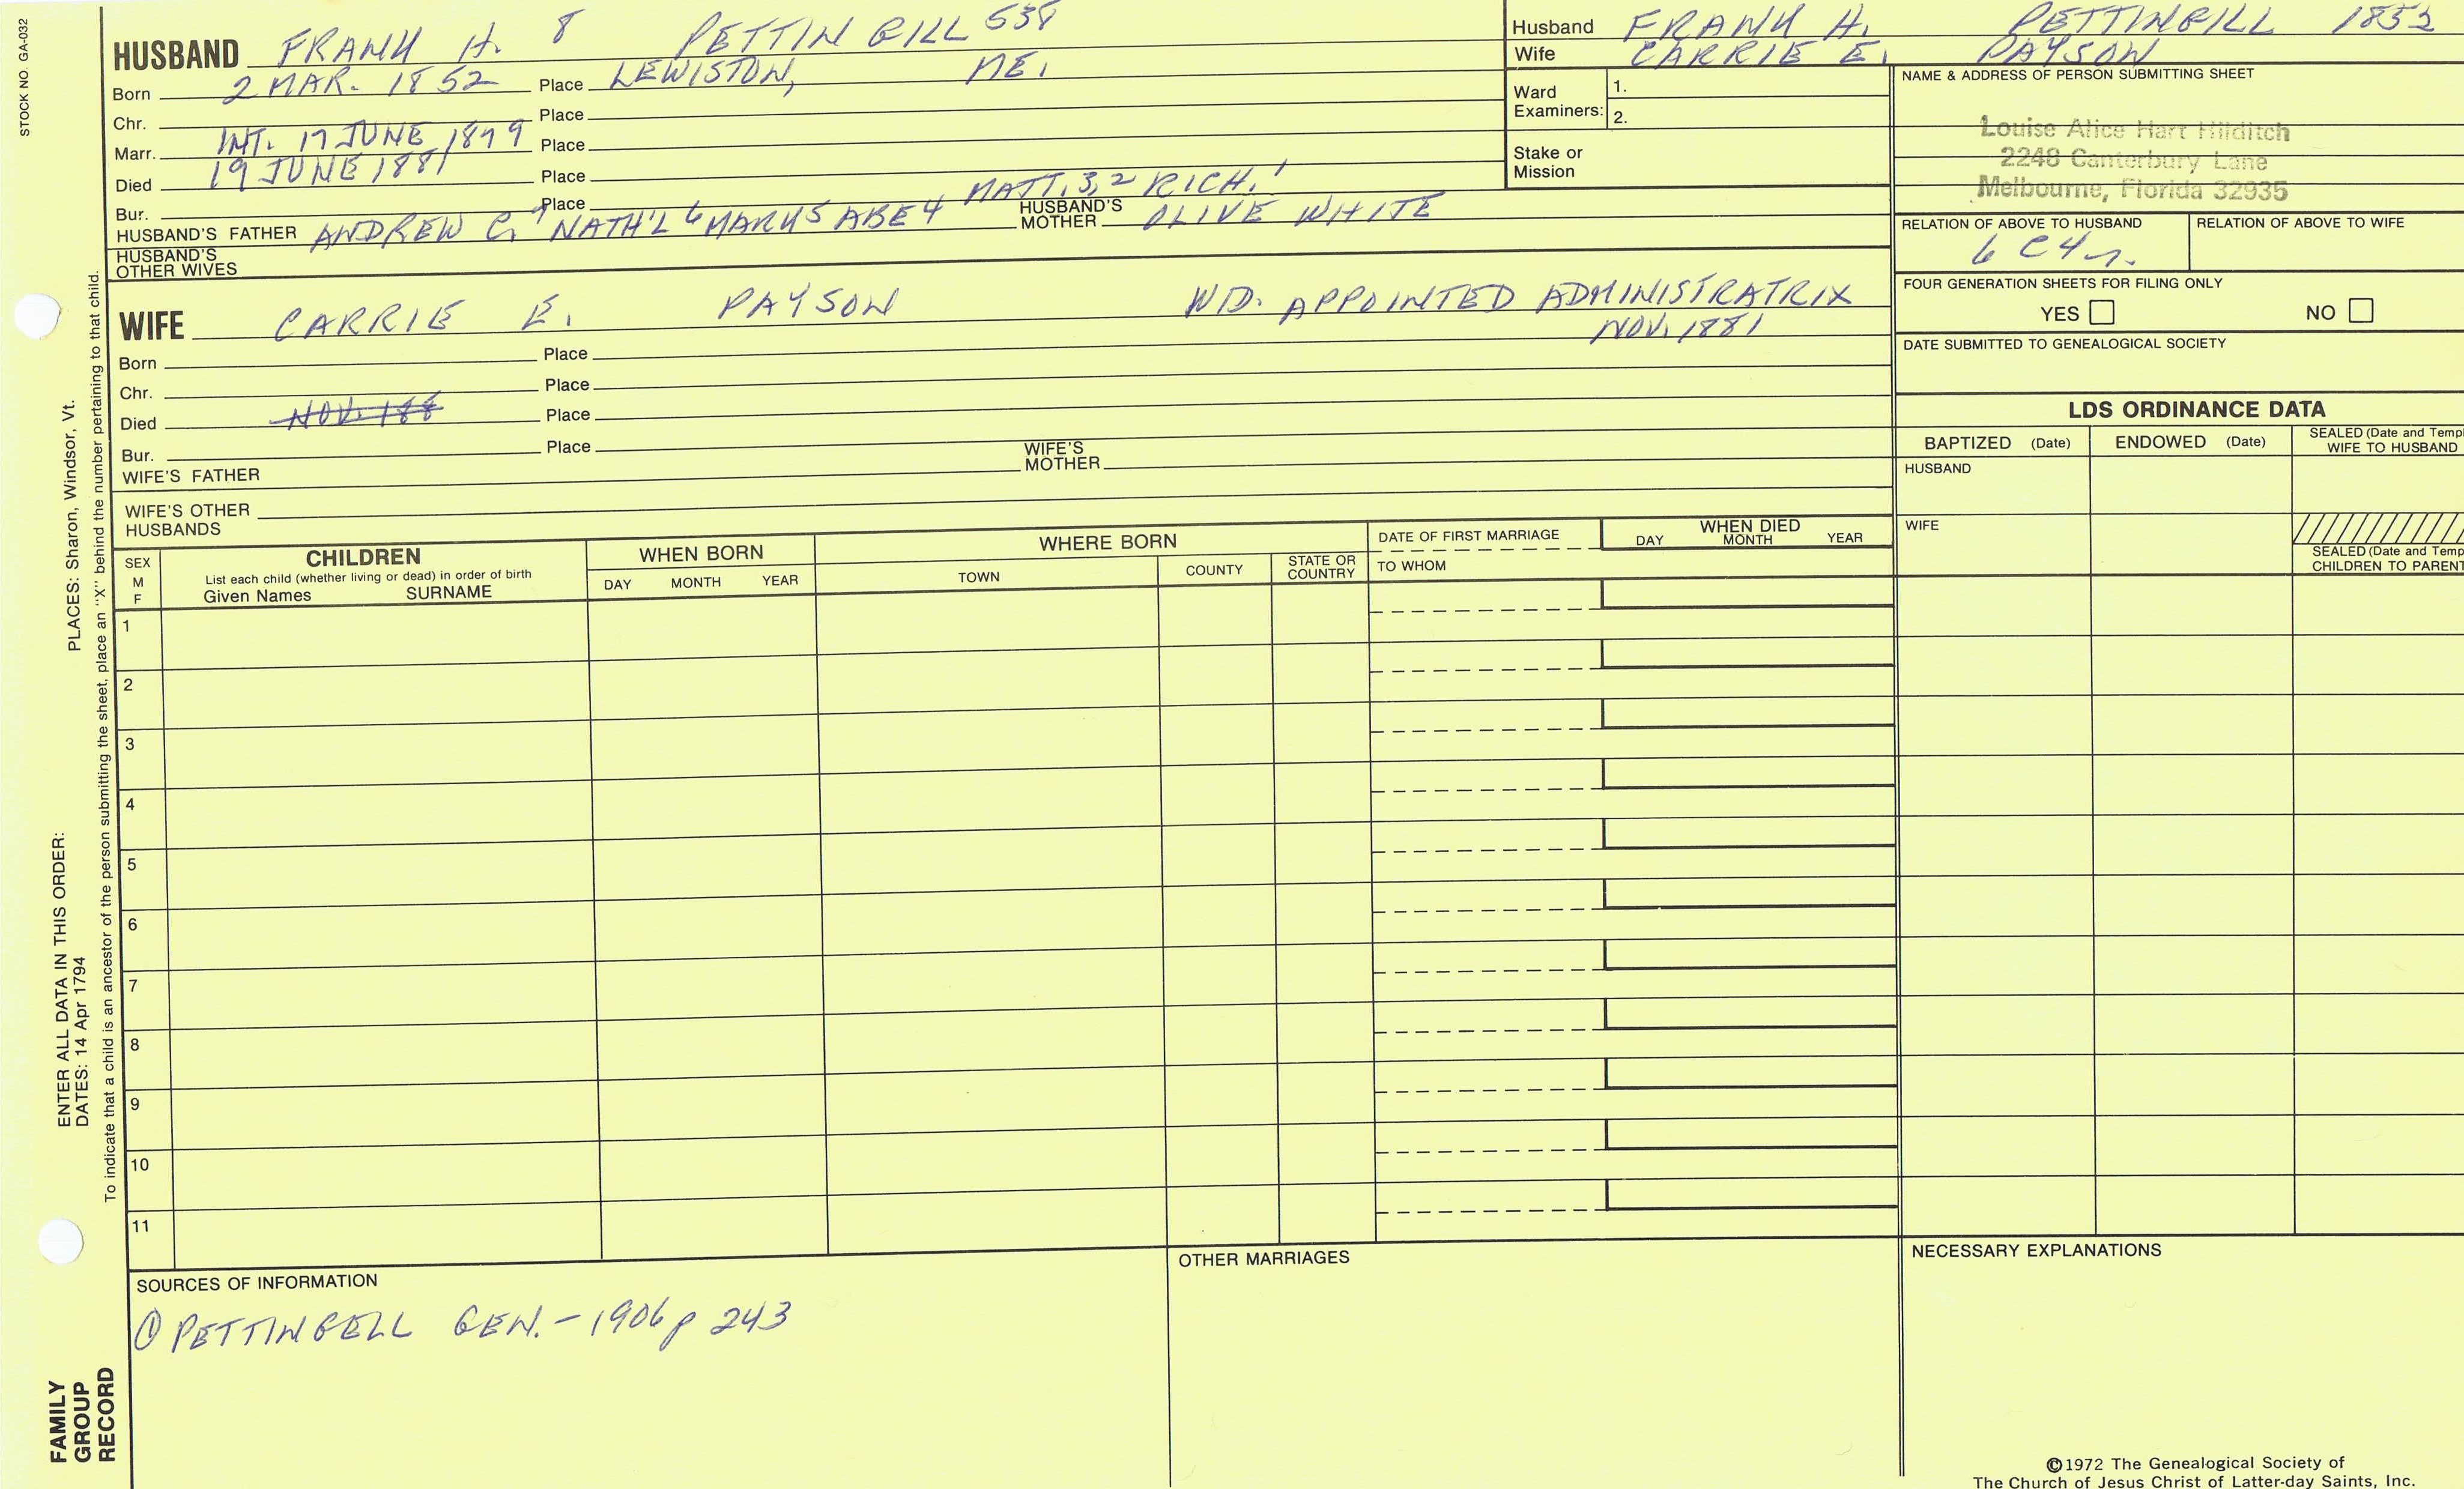 STOCK NO. GA-032
HUSBAND FRANK H. 8 PETTINGILL 538
Born 2 MAR. 1852 Place LEWISTON, ME.
Chr. Place
Marr. INT. 17 JUNE 1879 Place
Died 19 JUNE 1881 Place
Bur. Place
HUSBAND'S FATHER ANDREW C. 7 NATH'L 6 MARK 5 ABE 4 MATT. 3, 2 RICH. 1 HUSBAND'S MOTHER OLIVE WHITE
HUSBAND'S OTHER WIVES
WIFE CARRIE E. PAYSON WID. APPOINTED ADMINISTRATRIX
NOV. 1881
Born Place
Chr. Place
Died NOV. 188 Place
Bur. Place
WIFE'S FATHER WIFE'S MOTHER
WIFE'S OTHER HUSBANDS
Husband FRANK H. PETTINGILL 1852
Wife CARRIE E. PAYSON
Ward Examiners: 1.
2.
Stake or Mission
NAME & ADDRESS OF PERSON SUBMITTING SHEET
Louise Alice Hart Hilditch
2248 Canterbury Lane
Melbourne, Florida 32935
RELATION OF ABOVE TO HUSBAND RELATION OF ABOVE TO WIFE
6 C 4 r.
FOUR GENERATION SHEETS FOR FILING ONLY
YES NO
DATE SUBMITTED TO GENEALOGICAL SOCIETY
LDS ORDINANCE DATA
BAPTIZED (Date) ENDOWED (Date) SEALED (Date and Temp
WIFE TO HUSBAND
HUSBAND
WIFE
SEALED (Date and Temp
CHILDREN TO PARENT
SEX
M
F
CHILDREN
List each child (whether living or dead) in order of birth
Given Names SURNAME
WHEN BORN
DAY MONTH YEAR
WHERE BORN
TOWN COUNTY STATE OR COUNTRY
DATE OF FIRST MARRIAGE
TO WHOM
WHEN DIED
DAY MONTH YEAR
1
2
3
4
5
6
7
8
9
10
11
SOURCES OF INFORMATION
① PETTINGELL GEN. - 1906 p 243
OTHER MARRIAGES
NECESSARY EXPLANATIONS
©1972 The Genealogical Society of
The Church of Jesus Christ of Latter-day Saints, Inc.
ENTER ALL DATA IN THIS ORDER: PLACES: Sharon, Windsor, Vt.
DATES: 14 Apr 1794
To indicate that a child is an ancestor of the person submitting the sheet, place an "X" behind the number pertaining to that child.
FAMILY
GROUP
RECORD